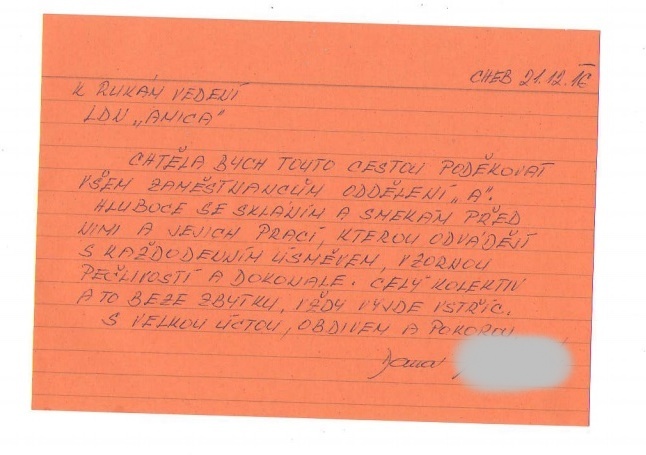 CHEB 21.12.16
K RUKÁM VEDENÍ
LDN „AMICA"
CHTĚLA BYCH TOUTO CESTOU PODĚKOVAT
VŠEM ZAMĚSTNANCŮM ODDĚLENÍ „A".
HLUBOCE SE SKLÁNÍM A SMEKÁM PŘED
NIMI A JEJICH PRACÍ, KTEROU ODVÁDĚJÍ
S KAŽDODENNÍM ÚSMĚVEM, VZORNOU
PEČLIVOSTÍ A DOKONALE. CELÝ KOLEKTIV
A TO BEZE ZBYTKU, VŽDY VYJDE VSTŘÍC.
S VELKOU ÚCTOU, OBDIVEM A POKOROU
Dana